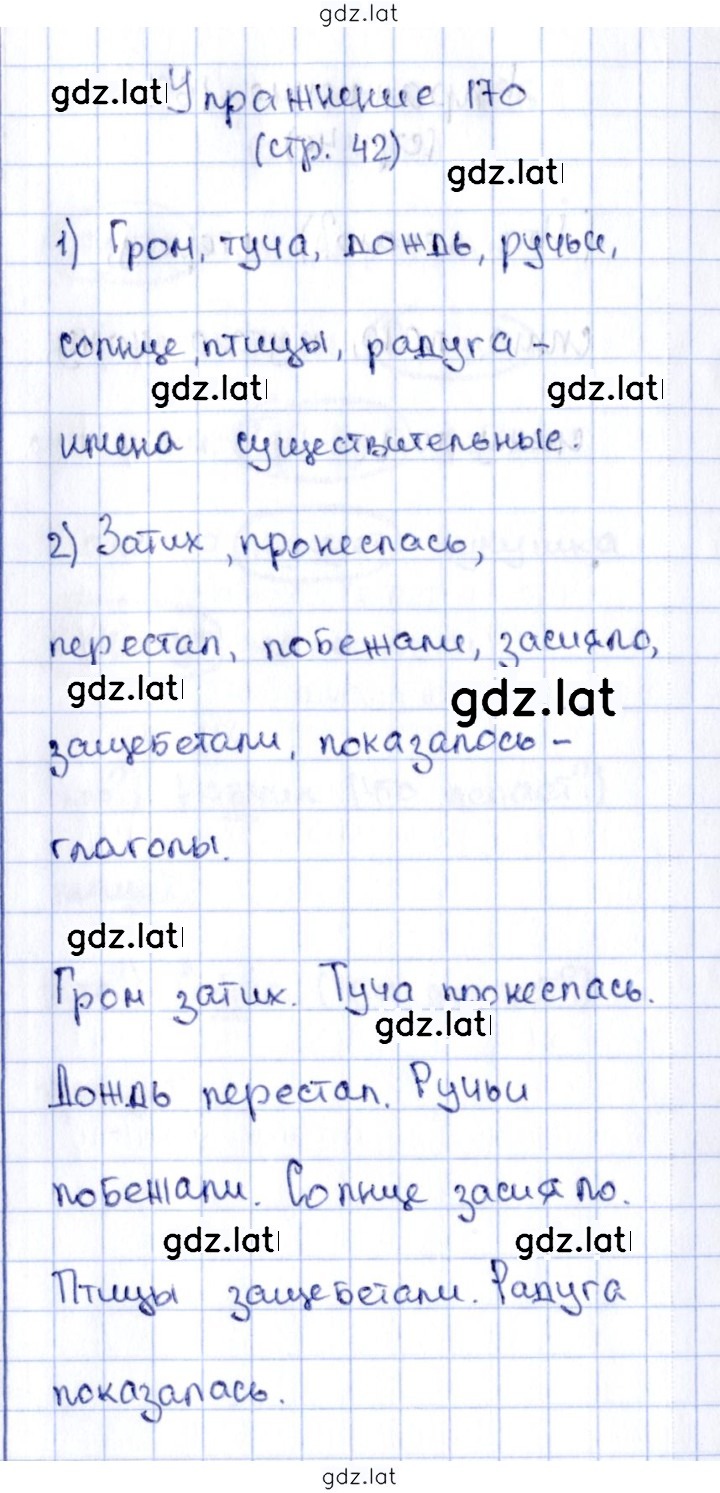 gdz.lat
gdz.lat Упражнение 170
(стр. 42)
gdz.lat
1) Гром, туча, дождь, ручьи,
солнце, птицы, радуга -
gdz.lat gdz.lat
имена существительные.
2) Затих, пронеслась,
перестал, побежали, засияло,
gdz.lat gdz.lat
защебетали, показалось -
глаголы.
gdz.lat
Гром затих. Туча пронеслась.
gdz.lat
Дождь перестал. Ручьи
побежали. Солнце засияло.
gdz.lat gdz.lat
Птицы защебетали. Радуга
показалась.
gdz.lat